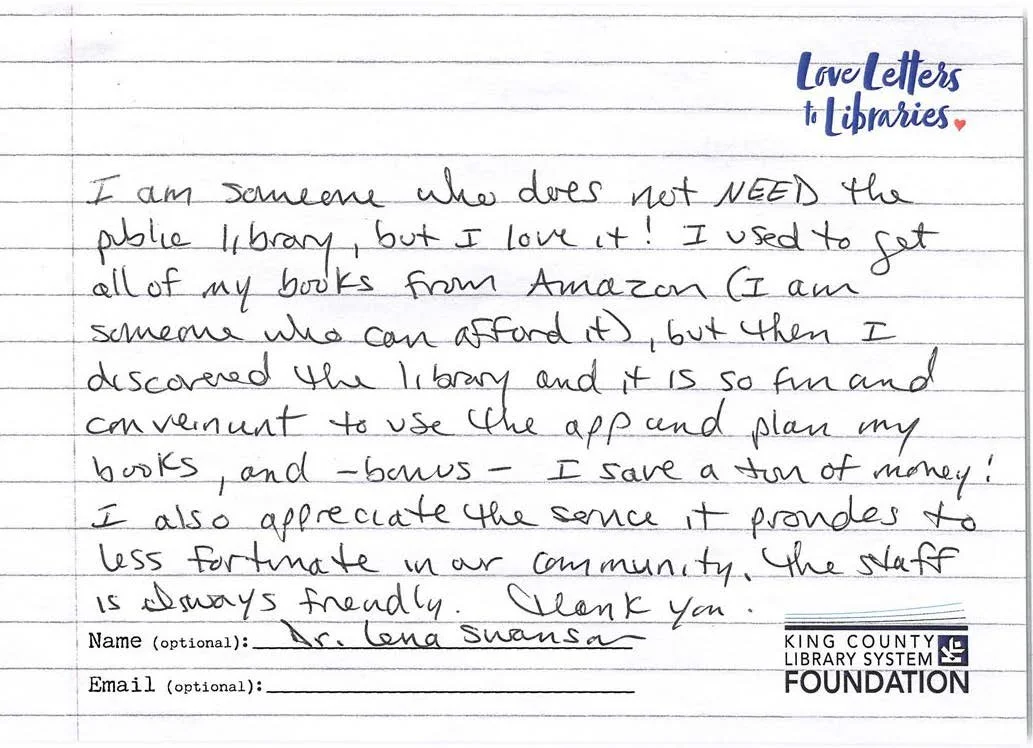 Love Letters
to Libraries
I am someone who does not NEED the
public library, but I love it! I used to get
all of my books from Amazon (I am
someone who can afford it), but then I
discovered the library and it is so fun and
conveinunt to use the app and plan my
books, and - bonus - I save a ton of money!
I also appreciate the service it provides to
less fortunate in our community. The staff
is always friendly. Thank you.
Name (optional): Dr. Lena Swanson
Email (optional):
KING COUNTY
LIBRARY SYSTEM
FOUNDATION